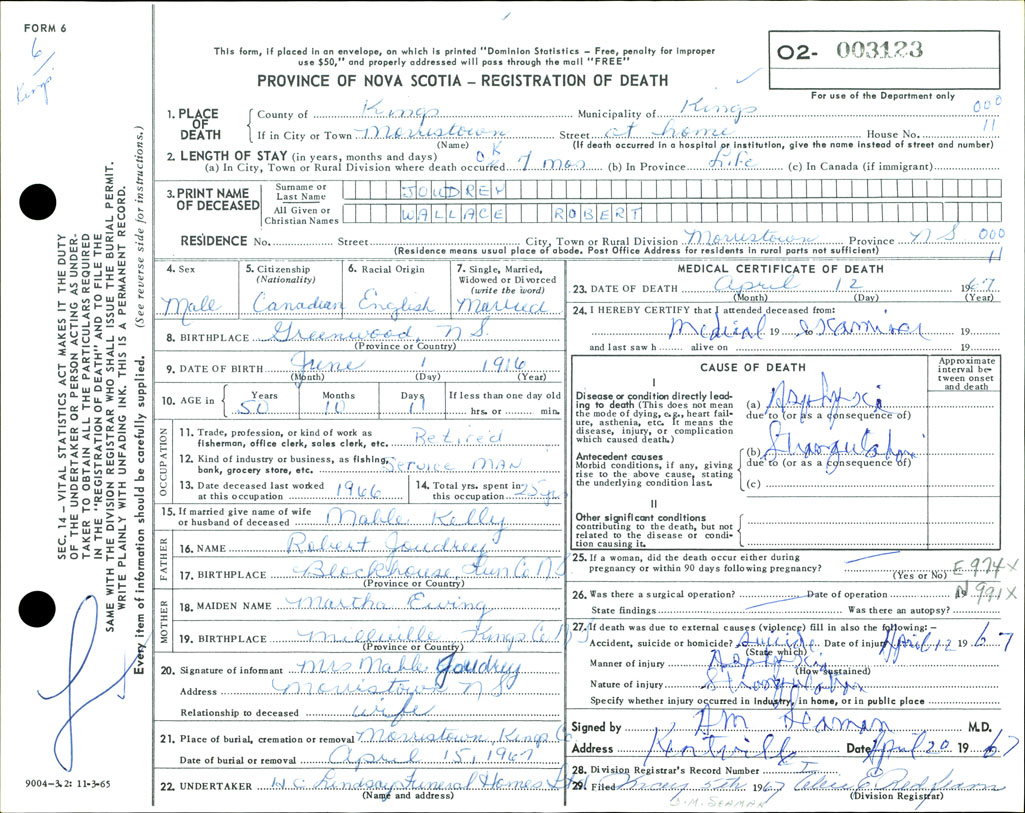 FORM 6
6/
Kings
This form, if placed in an envelope, on which is printed "Dominion Statistics – Free, penalty for improper
use $50," and properly addressed will pass through the mail "FREE"
PROVINCE OF NOVA SCOTIA – REGISTRATION OF DEATH
02- 003123
For use of the Department only
1. PLACE OF DEATH
County of Kings Municipality of Kings 000
If in City or Town Morristown Street at home House No. 11
(Name) (If death occurred in a hospital or institution, give the name instead of street and number)
2. LENGTH OF STAY (in years, months and days) OK
(a) In City, Town or Rural Division where death occurred 7 mos (b) In Province Life (c) In Canada (if immigrant)
3. PRINT NAME OF DECEASED
Surname or Last Name JOUDREY
All Given or Christian Names WALLACE ROBERT
RESIDENCE No. Street City, Town or Rural Division Morristown Province NS 000
(Residence means usual place of abode. Post Office Address for residents in rural parts not sufficient) 11
4. Sex
Male
5. Citizenship
(Nationality)
Canadian
6. Racial Origin
English
7. Single, Married,
Widowed or Divorced
(write the word)
Married
8. BIRTHPLACE Greenwood, N S
(Province or Country)
9. DATE OF BIRTH June 1 1916
(Month) (Day) (Year)
10. AGE in Years Months Days If less than one day old
50 10 11 hrs. or min.
OCCUPATION
11. Trade, profession, or kind of work as
fisherman, office clerk, sales clerk, etc. Retired
12. Kind of industry or business, as fishing,
bank, grocery store, etc. Service MAN
13. Date deceased last worked
at this occupation 1966
14. Total yrs. spent in
this occupation 25 yrs
15. If married give name of wife
or husband of deceased Mable Kelly
FATHER
16. NAME Robert Joudrey
17. BIRTHPLACE Blockhouse, Lun Co N S
(Province or Country)
MOTHER
18. MAIDEN NAME Martha Ewing
19. BIRTHPLACE Millville Kings Co. N S
(Province or Country)
20. Signature of informant Mrs Mable Joudrey
Address Morristown N S
Relationship to deceased wife
21. Place of burial, cremation or removal Morristown Kings Co
Date of burial or removal April 15, 1967
22. UNDERTAKER H. C. Lindsay Funeral Homes Ltd
(Name and address)
MEDICAL CERTIFICATE OF DEATH
23. DATE OF DEATH April 12 1967
(Month) (Day) (Year)
24. I HEREBY CERTIFY that I attended deceased from:
Medical 19 to Examiner 19
and last saw h alive on 19
CAUSE OF DEATH
Approximate interval between onset and death
I
Disease or condition directly leading to death (This does not mean
the mode of dying, e.g., heart failure, asthenia, etc. It means the
disease, injury, or complication
which caused death.)
(a) Asphyxia
due to (or as a consequence of)
Antecedent causes
Morbid conditions, if any, giving
rise to the above cause, stating
the underlying condition last.
(b) Strangulation
due to (or as a consequence of)
(c)
II
Other significant conditions
contributing to the death, but not
related to the disease or condition causing it.
25. If a woman, did the death occur either during
pregnancy or within 90 days following pregnancy?
(Yes or No) E 974X
26. Was there a surgical operation? Date of operation 19 N 991X
State findings Was there an autopsy?
27. If death was due to external causes (violence) fill in also the following: –
Accident, suicide or homicide? Suicide Date of injury April 12 1967
(State which)
Manner of injury Asphyxia
(How sustained)
Nature of injury Strangulation
Specify whether injury occurred in industry, in home, or in public place
Signed by AM Seaman M.D.
Address Kentville Date April 20 1967
28. Division Registrar's Record Number
29. Filed May 5th 1967
(Division Registrar)
J.M. SEAMAN
SEC. 14 – VITAL STATISTICS ACT MAKES IT THE DUTY
OF THE UNDERTAKER OR PERSON ACTING AS UNDER-
TAKER TO OBTAIN ALL THE PARTICULARS REQUIRED
IN THE "REGISTRATION OF DEATH" AND TO FILE THE
SAME WITH THE DIVISION REGISTRAR WHO SHALL ISSUE THE BURIAL PERMIT.
WRITE PLAINLY WITH UNFADING INK. THIS IS A PERMANENT RECORD.
Every item of information should be carefully supplied. (See reverse side for instructions.)
9004-3.2: 11-3-65